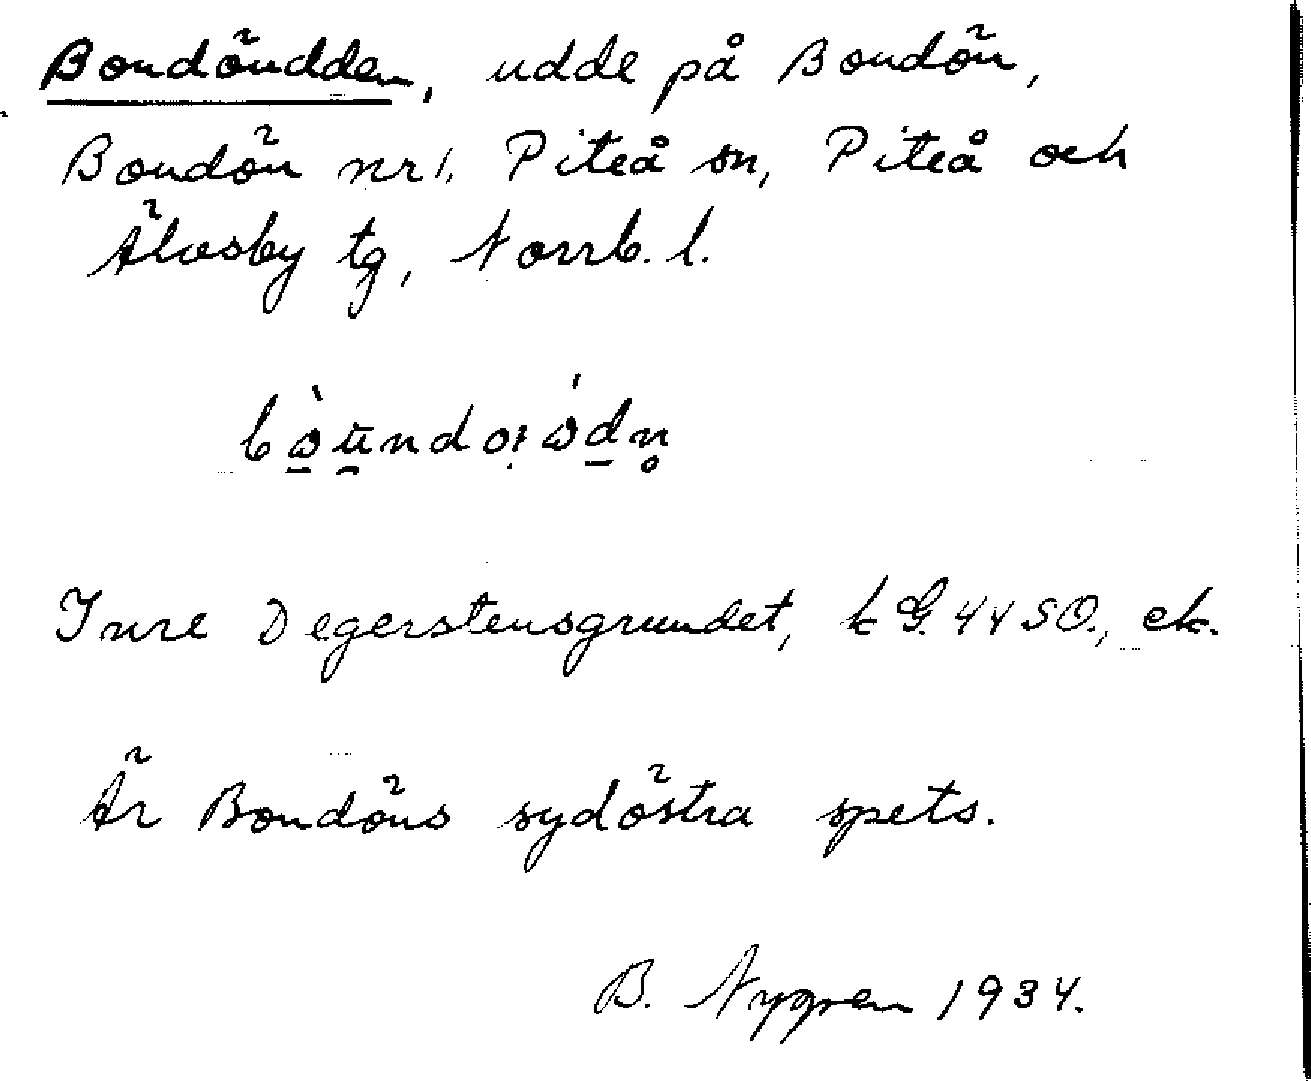 Bondöudden, udde på Bondön,
Bondön nr 1, Piteå sn, Piteå och
Älvsby tg, Norrb. l.
Inre Degerstensgrundet, k G. 44 SO., ek.
Är Bondöns sydöstra spets.
B. Nygren 1934.